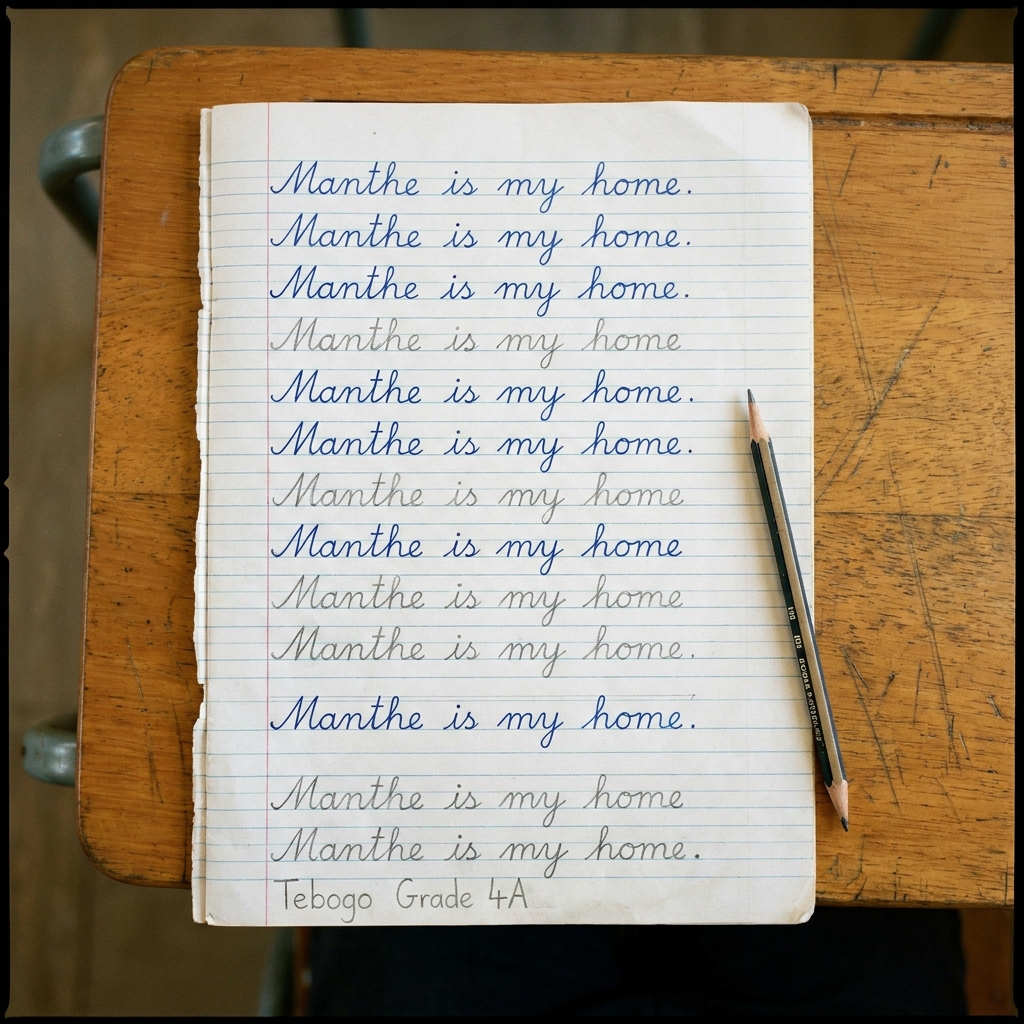 Manthe is my home.
Manthe is my home.
Manthe is my home.
Manthe is my home
Manthe is my home.
Manthe is my home.
Manthe is my home
Manthe is my home
Manthe is my home
Manthe is my home.
Manthe is my home.
Manthe is my home
Manthe is my home.
Tebogo Grade 4A